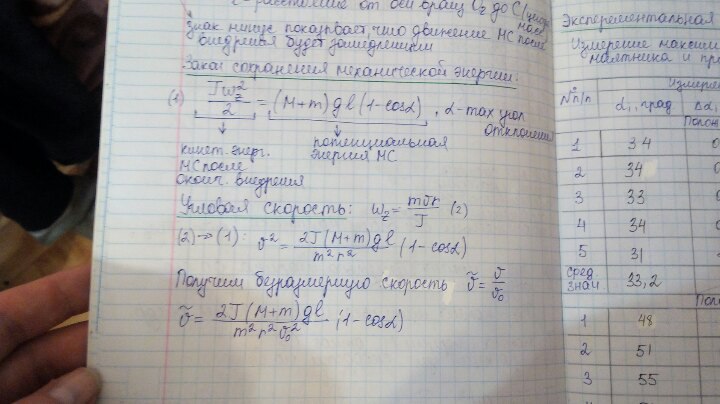 - расстояние от оси вращ Cz до C (центр масс
знак минус показывает, что движение МС после
внедрения будет замедленным
Закон сохранения механической энергии:
(1) Jω_z²/2 = (M+m)gl(1-cosα), α-max угол отклонения
кинет. энерг. МС после оконч. внедрения
потенциальная энергия МС
Угловая скорость: ω_z = mvr/J (2)
(2)→(1): v² = 2J(M+m)gl/m²r² (1-cosα)
Получим безразмерную скорость ṽ = v/v₀
ṽ = 2J(M+m)gl/m²r²v₀² (1-cosα)
Экспериментальная
Измерение макси
маятника и пр
Измере
№ п/п α₁, град Δα
Поло
1 34 0
2 34 0
3 33 0
4 34 0
5 31
сред. знач. 33,2
Поло
1 48
2 51
3 55